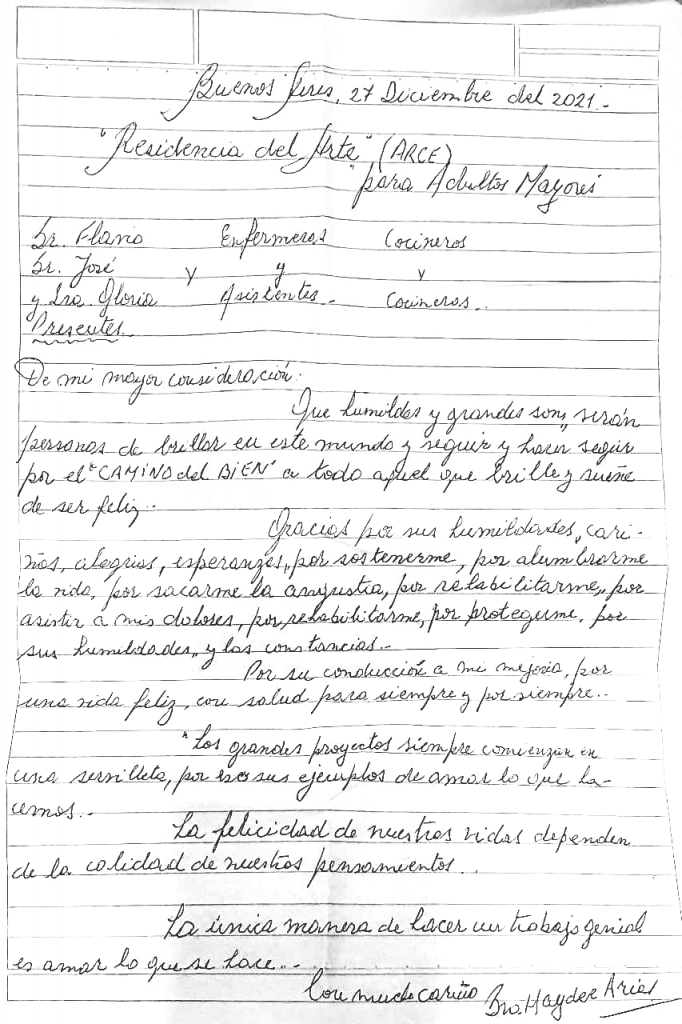 Buenos Aires, 27 Diciembre del 2021.-
"Residencia del Arte" (ARCE)
para Adultos Mayores
Sr. Flavio Enfermeras Cocineros
Sr. José y y y
y Sra. Gloria Asistentes.- Cocineras..
Presentes.
De mi mayor consideración:
Que humildes y grandes son, serán
personas de brillar en este mundo y seguir y hacer seguir
por el "CAMINO del BIEN" a todo aquel que brille y sueñe
de ser feliz..
Gracias por sus humildades, cari-
ños, alegrías, esperanzas, por sostenerme, por alumbrarme
la vida, por sacarme la angustia, por rehabilitarme, por
asistir a mis dolores, por, rehabilitarme, por protegerme, por
sus humildades, y las constancias..
Por su conducción a mi mejoría, por
una vida feliz, con salud para siempre y por siempre..
"Los grandes proyectos siempre comienzan en
una servilleta, por eso sus ejemplos de amar lo que ha-
cemos..
La felicidad de nuestras vidas dependen
de la calidad de nuestros pensamientos..
La única manera de hacer un trabajo genial
es amar lo que se hace..
Con mucho cariño Haydee Arias